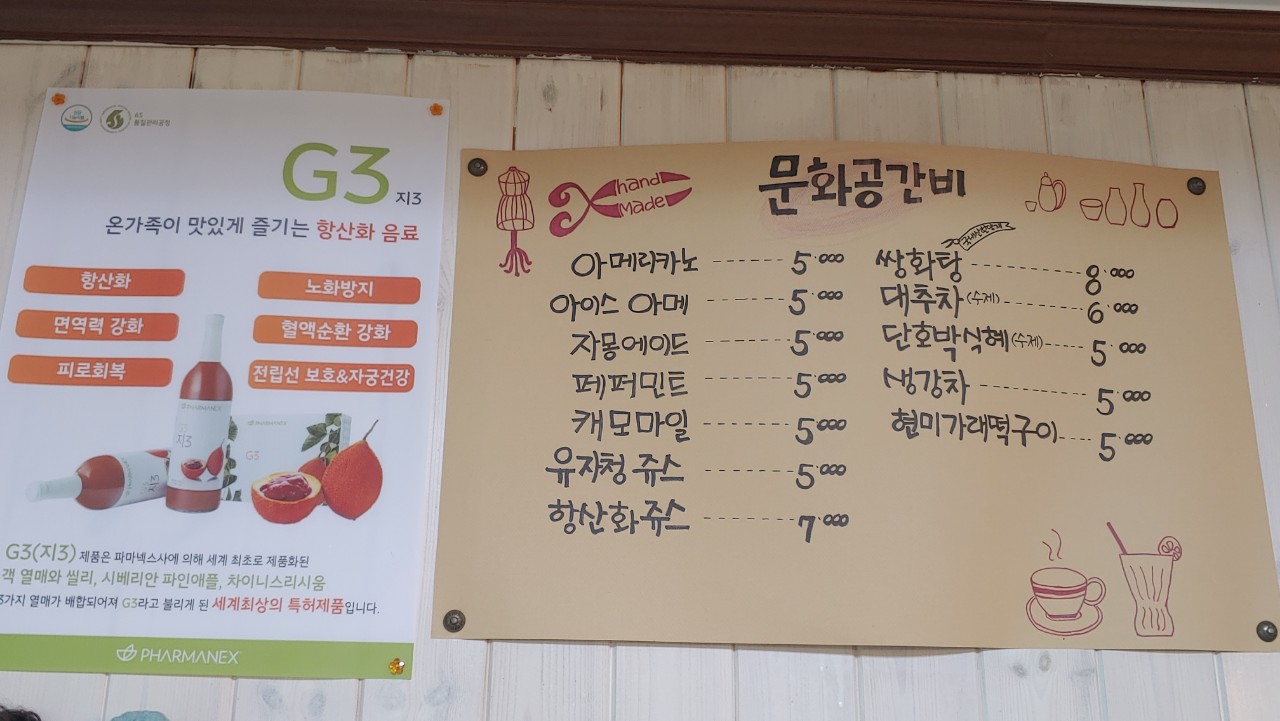 GS
품질관리공정
G3 지3
온가족이 맛있게 즐기는 항산화 음료
항산화
노화방지
면역력 강화
혈액순환 강화
피로회복
전립선 보호&자궁건강
PHARMANEX
지3
지3
PHARMANEX
G3
G3(지3) 제품은 파마넥스사에 의해 세계 최초로 제품화된
객 열매와 씰리, 시베리안 파인애플, 차이니스리시움
3가지 열매가 배합되어져 G3라고 불리게 된 세계최상의 특허제품입니다.
PHARMANEX
hand
made
문화공간비
아메리카노 5.000
아이스 아메 5.000
자몽에이드 5.000
페퍼민트 5.000
캐모마일 5.000
유자청 쥬스 5.000
항산화쥬스 7.000
쌍화탕 8.000
대추차(수제) 6.000
단호박식혜(수제) 5.000
생강차 5.000
현미가래떡구이 5.000